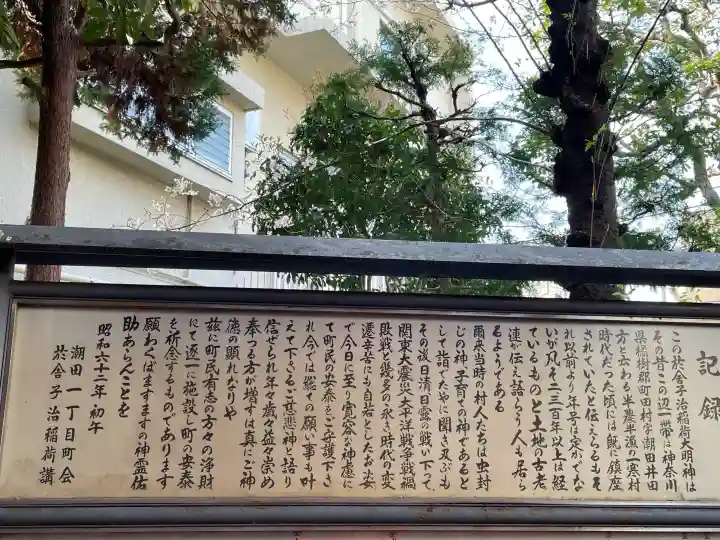 記録
この於舍子治稲荷大明神は
その昔この辺一帯は神奈川
県橘樹郡町田村字潮田井田
方と云わる半農半漁の一寒村
時代だった頃には既に鎮座
されていたと伝えらるもそ
れ以前より年号は定かでな
いが凡そ二三百年以上は経
ているものと土地の古老
連が伝え語らう人も居ら
るようである
爾来当時の村人たちは虫封
じの神子育ての神であると
して詣でたやに聞き及ぶも
その後日清日露の戦い下って、
関東大震災太平洋戦争戦禍
敗戦と幾多の永き時代の変
遷辛苦にも自若としたお姿
で今日に至り寛容な神慮に
て町民の安泰をご守護下さ
れ今では総ての願い事も叶
えて下さるご慈悲神と語り
信ぜられ年々歳々益々崇め
奉つる方が増すは真にご神
徳の顕れなりや
茲に町民有志の方々の浄財
にて逐一に施設し町の安泰
を祈念するものであります
願わくばますますの神霊佑
助あらんことを
昭和六十二年初午
潮田一丁目町会
於舍子治稲荷講